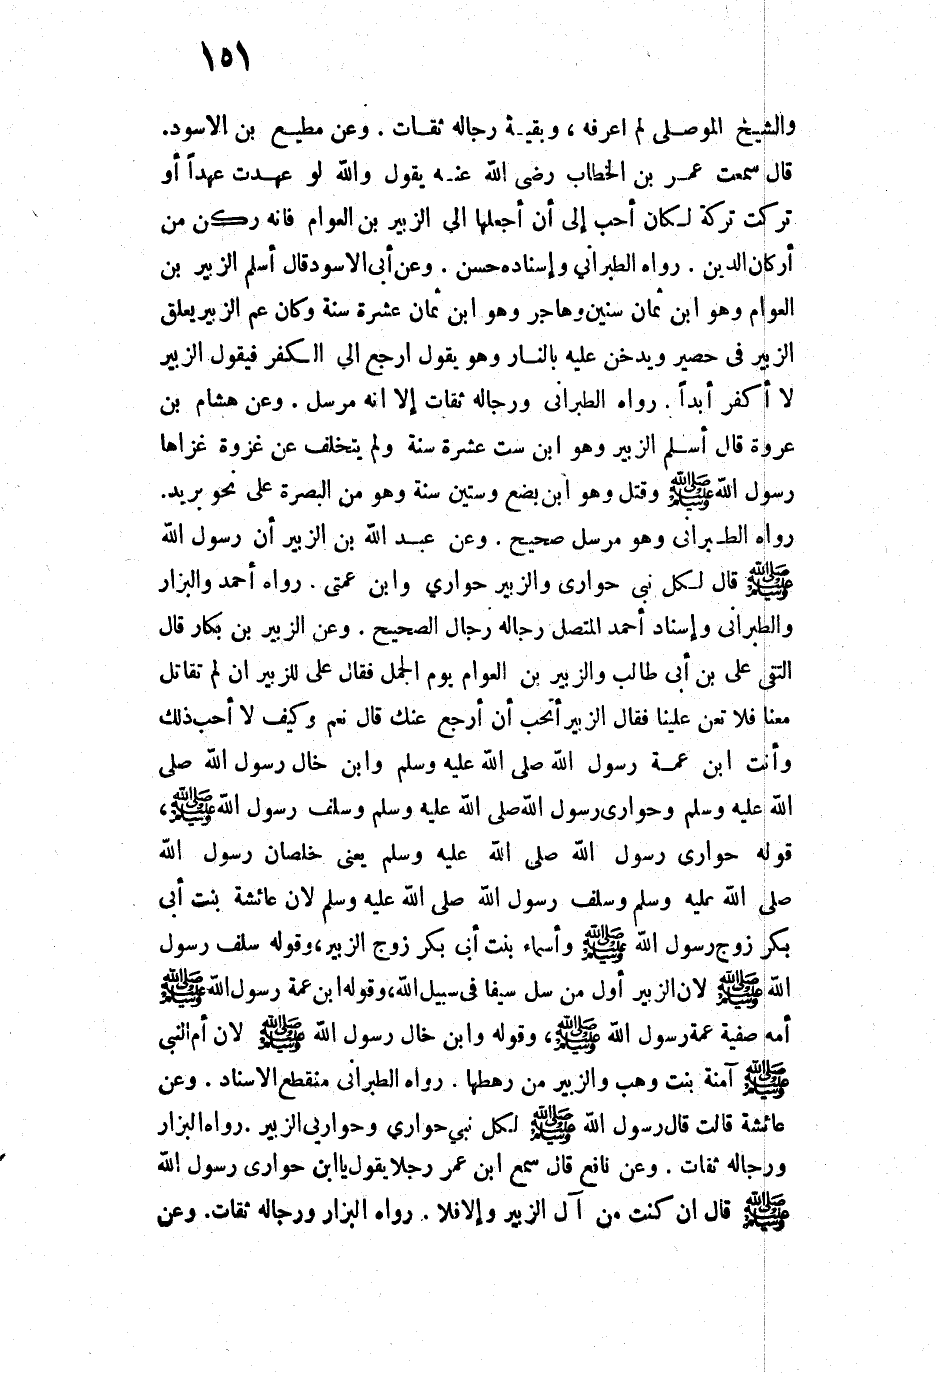 ١٥١
والشيخ الموصلى لم اعرفه ، وبقية رجاله ثقات . وعن مطيع بن الاسود.
قال سمعت عمر بن الخطاب رضى الله عنه يقول والله لو عهدت عهداً أو
تركت تركة لكان أحب إلى أن أجعلها الي الزبير بن العوام فانه ركن من
أركان الدين . رواه الطبراني وإسناده حسن . وعن أبى الاسود قال أسلم الزبير بن
العوام وهو ابن ثمان سنين وهاجر وهو ابن ثمان عشرة سنة وكان عم الزبير يعلق
الزبير فى حصير ويدخن عليه بالنار وهو يقول ارجع الي الكفر فيقول الزبير
لا أكفر أبداً . رواه الطبرانى ورجاله ثقات إلا انه مرسل . وعن هشام بن
عروة قال أسلم الزبير وهو ابن ست عشرة سنة ولم يتخلف عن غزوة غزاها
رسول الله ﷺ وقتل وهو ابن بضع وستين سنة وهو من البصرة على نحو بريد.
رواه الطبرانى وهو مرسل صحيح . وعن عبد الله بن الزبير أن رسول الله
ﷺ قال لكل نبى حوارى والزبير حواري وابن عمتى . رواه أحمد والبزار
والطبرانى وإسناد أحمد المتصل رجاله رجال الصحيح . وعن الزبير بن بكار قال
التقى على بن أبى طالب والزبير بن العوام يوم الجمل فقال على للزبير ان لم تقاتل
معنا فلا تعن علينا فقال الزبير أتحب أن أرجع عنك قال نعم وكيف لا أحب ذلك
وأنت ابن عمة رسول الله صلى الله عليه وسلم وابن خال رسول الله صلى
الله عليه وسلم وحوارى رسول الله صلى الله عليه وسلم وسلف رسول الله ﷺ،
قوله حوارى رسول الله صلى الله عليه وسلم يعنى خلصان رسول الله
صلى الله عليه وسلم وسلف رسول الله صلى الله عليه وسلم لان عائشة بنت أبي
بكر زوج رسول الله ﷺ وأسماء بنت أبى بكر زوج الزبير، وقوله سلف رسول
الله ﷺ لان الزبير أول من سل سيفا فى سبيل الله، وقوله ابن عمة رسول الله ﷺ
أمه صفية عمة رسول الله ﷺ، وقوله وابن خال رسول الله ﷺ لان أم النبي
ﷺ آمنة بنت وهب والزبير من رهطها . رواه الطبرانى منقطع الاسناد . وعن
عائشة قالت قال رسول الله ﷺ لكل نبي حواري وحواريى الزبير . رواه البزار
ورجاله ثقات . وعن نافع قال سمع ابن عمر رجلا يقول يا ابن حوارى رسول الله
ﷺ قال ان كنت من آل الزبير وإلا فلا . رواه البزار ورجاله ثقات. وعن